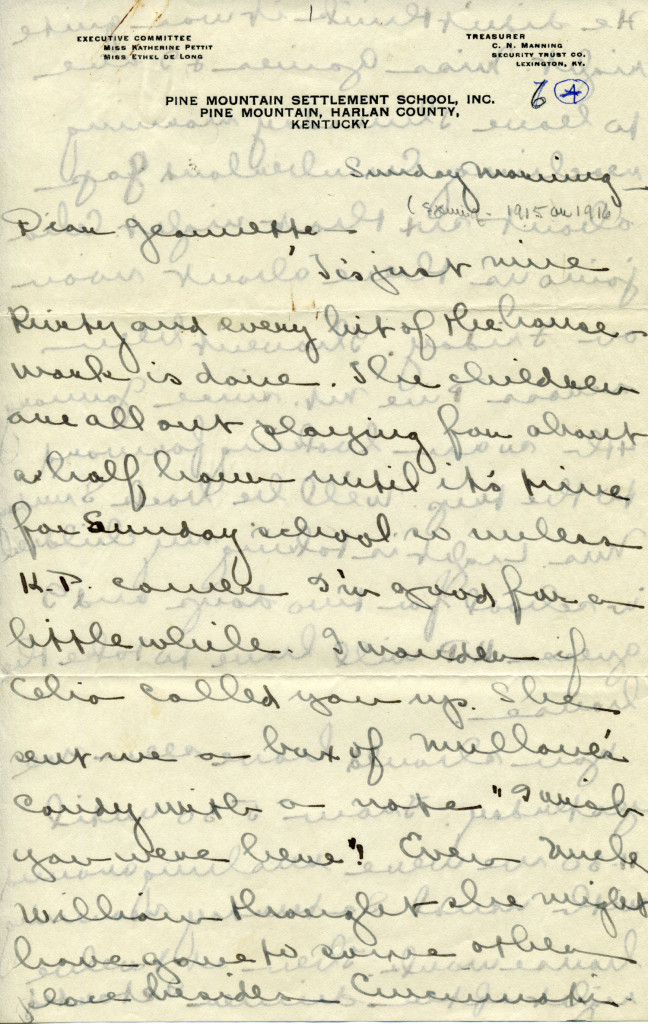 EXECUTIVE COMMITTEE
MISS KATHERINE PETTIT
MISS ETHEL DE LONG
TREASURER
C. N. MANNING
SECURITY TRUST CO.
LEXINGTON, KY.
6 4
PINE MOUNTAIN SETTLEMENT SCHOOL, INC.
PINE MOUNTAIN, HARLAN COUNTY,
KENTUCKY
Sunday Morning
1915 or 1916)
Dear Jeannette
'Tis just nine
thirty and every bit of the house
work is done. The children
are all out playing for about
a half hour until it's time
for Sunday school so unless
K.P. comes I'm good for a
little while. I wonder if
Celia called you up. She
sent me a box of Mullane's
candy with a note "I wish
you were here"! Even Uncle
William thought she might
have gone to some other
place besides Cincinnati.